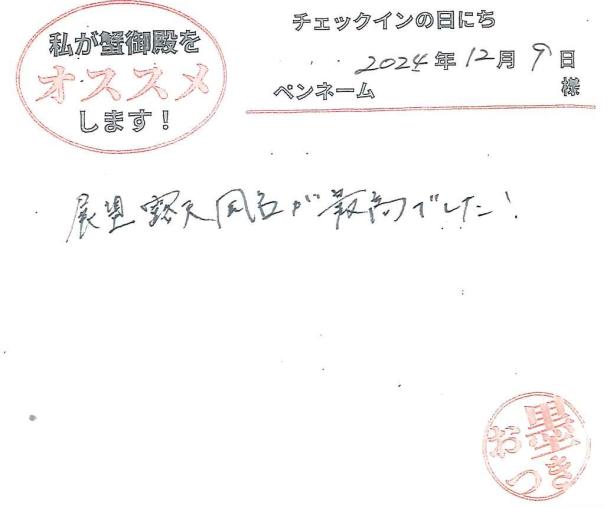 私が蟹御殿を
オススメ
します！
チェックインの日にち
2024年12月9日
ペンネーム 様
展望露天風呂が最高でした！
お墨
つき